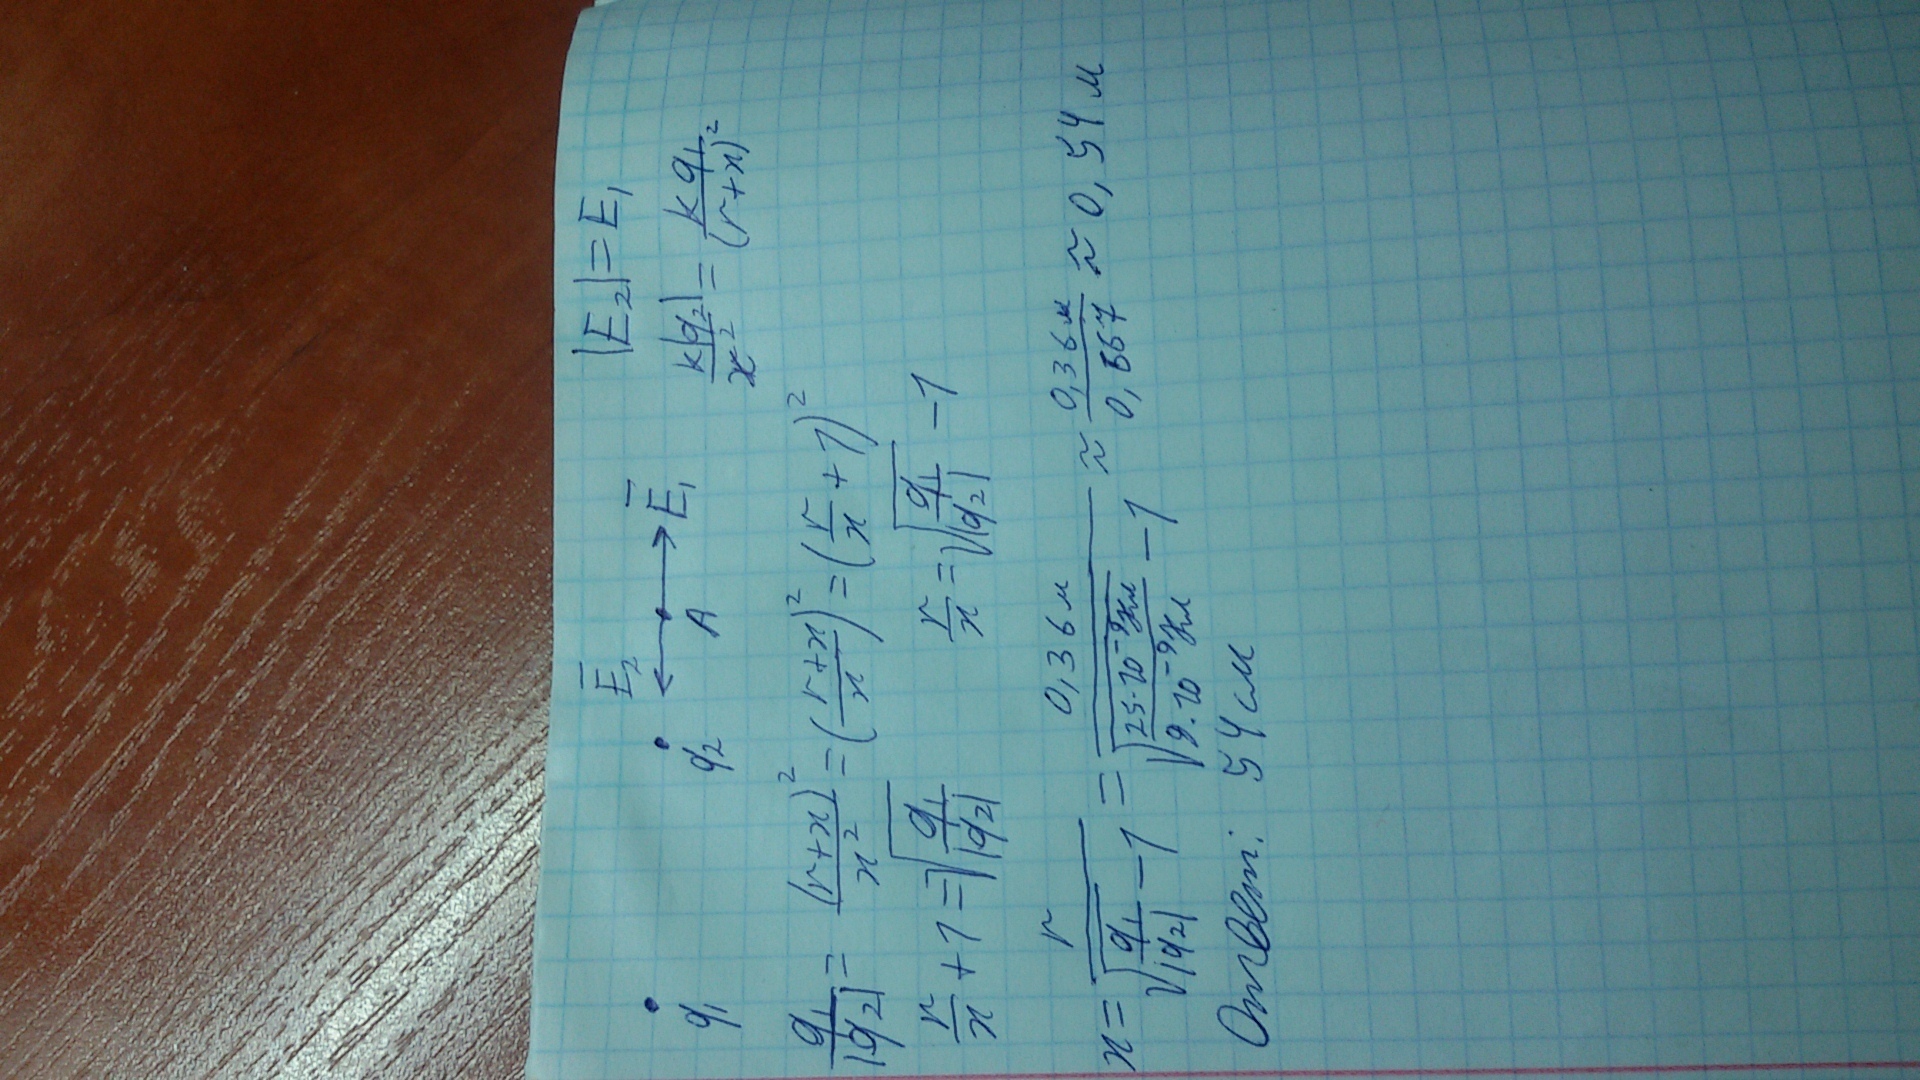 Ē₂ Ē₁ |E₂| = E₁
q₁ q₂ A k|q₂|/x² = kq₁/(r+x)²
q₁/|q₂| = (r+x)²/x² = ((r+x)/x)² = (r/x + 1)²
r/x + 1 = √(q₁/|q₂|) r/x = √(q₁/|q₂|) − 1
x = r/(√(q₁/|q₂|) − 1) = 0,36 м/(√(25·10⁻⁹Кл/9·10⁻⁹Кл) − 1) ≈ 0,36 м/0,667 ≈ 0,54 м
Ответ: 54 см